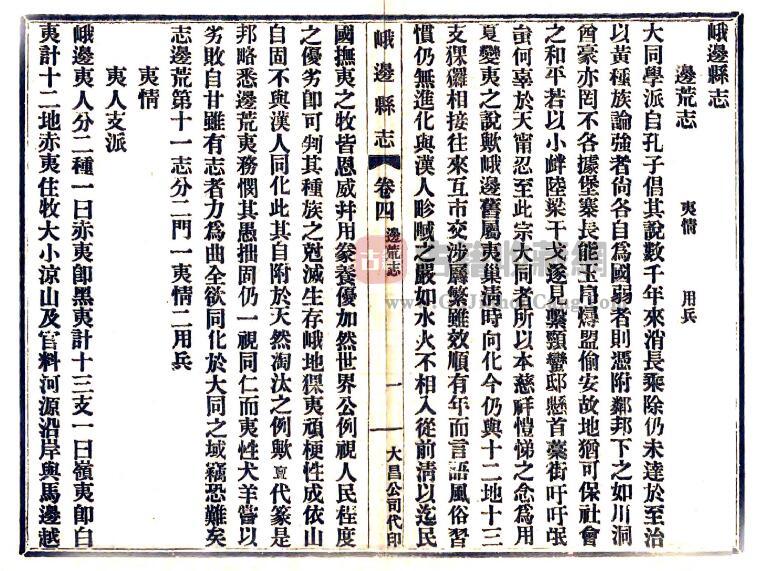 峨邊縣志
邊荒志　夷情　用兵
大同學派自孔子倡其說數千年來消長乘除仍未達於至治
以黃種族論強者尙各自為國弱者則憑附鄰邦下之如川洞
酋豪亦罔不各據堡寨長能玉官爆盟偷安故地猶可保社會
之和平若以小衅陸梁干戈遂見繫頸蠻邸懸首藁街吁吁氓
蚩何辜於天甯忍至此宗大同者所以本慈祥愷悌之念為用
夏變夷之說歟峨邊舊屬夷巢清時向化今仍與十二地十三
支猓玀相接往來互市交涉屬繁雖效順有年而言語風俗習
慣仍無進化與漢人畛畦之嚴如水火不相入從前清以迄民
峨邊縣志　卷四　邊荒志　一　大昌公司代印
國撫夷之牧皆恩威幷用豢養優加然世界公例視人民程度
之優劣卽可判其種族之尅滅生存峨地猓夷頑梗性成依山
自固不與漢人同化此其自附於天然淘汰之例歟　代篆是
邦略悉邊荒夷務憫其愚拙固仍一視同仁而夷性犬羊嘗以
劣敗自甘雖有志者力為曲全欲同化於大同之域竊恐難矣
志邊荒第十一志分二門一夷情二用兵
夷情
夷人支派
峨邊夷人分二種一曰赤夷卽黑夷計十三支一曰嶺夷卽白
夷計十二地赤夷住牧大小涼山及官料河源沿岸與馬邊越
古籍收藏網